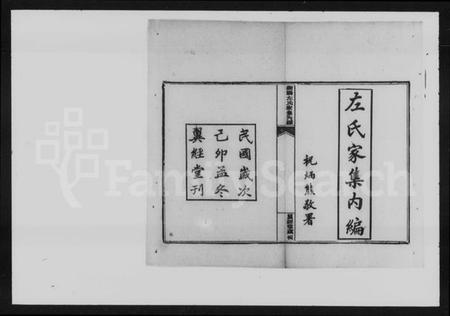 左氏家集內編
祝炳熊敬署
民國歲次
己卯孟冬
冀經堂刊
FamilySearch